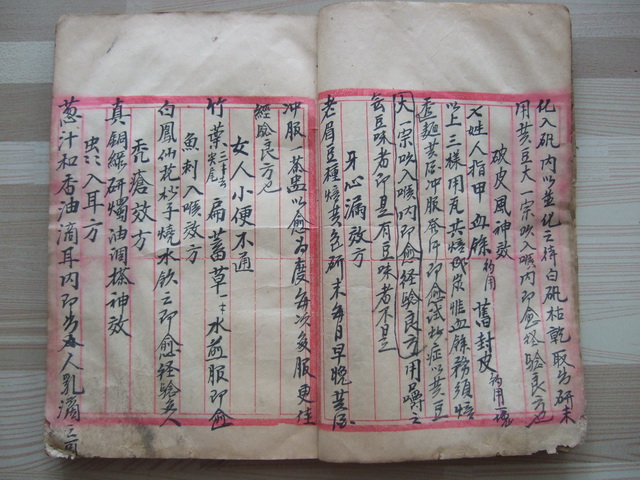 化入矾内以並化之待白矾枯乾取为研末
用黄豆大一宗吹入喉内即愈经验良方也
破皮風神效
七姓人指甲 血餘药用 舊封皮药用一塊
以上三樣用瓦共焙成炭惟血餘務須焙
透麵黄酒冲服發汗即愈試於症以黄豆
大一宗吹入喉内即愈经驗良方用嚼之
無豆味者即是有豆味者不是
牙心漏效方
老眉豆種焙黄色研末每日早晚黄酒
冲服一茶盅以愈为度每次多服更佳
經驗良方也
女人小便不通
竹葉 扁蓄草 水煎服即愈
魚刺入喉效方
白鳳仙花杪子燒水飲之即愈经驗多人
禿瘡效方
真銅綠研燭油调搽神效
虫入耳方
葱汁和香油滴耳内即出 人乳滴之可